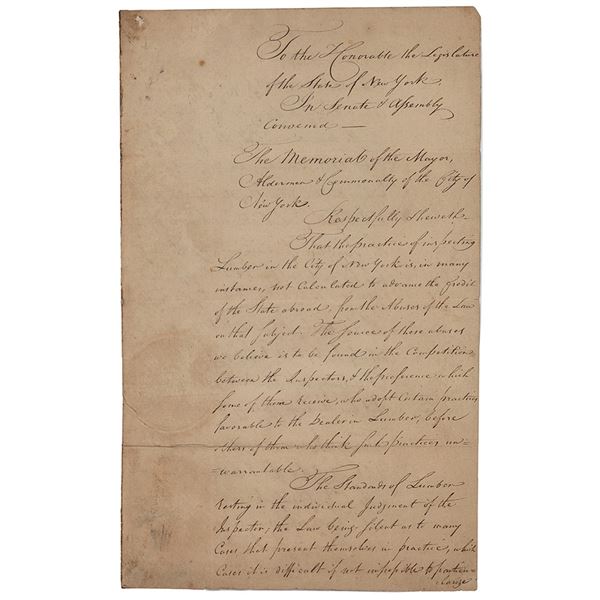 To the Honorable the Legislature
of the State of New York.
In Senate & Assembly
Convened —
The Memorial of the Mayor,
Aldermen & Commonalty of the City of
New York.
Respectfully Sheweth.
That the practice of inspecting
Lumber in the City of New York is, in many
instances, not Calculated to advance the Credit
of the State abroad, from the Abuses of the Law
on that subject. The source of those abuses
we believe is to be found in the Competition
between the Inspectors, & the preference which
some of them receive, who adopt Certain practices
favorable to the Dealer in Lumber, before
others of them who think such practices un=
=warrantable.
The Standard of Lumber
resting in the individual Judgment of the
Inspector; the Law being silent as to many
Cases that present themselves in practice, which
Cases it is difficult if not impossible to particu-
larize